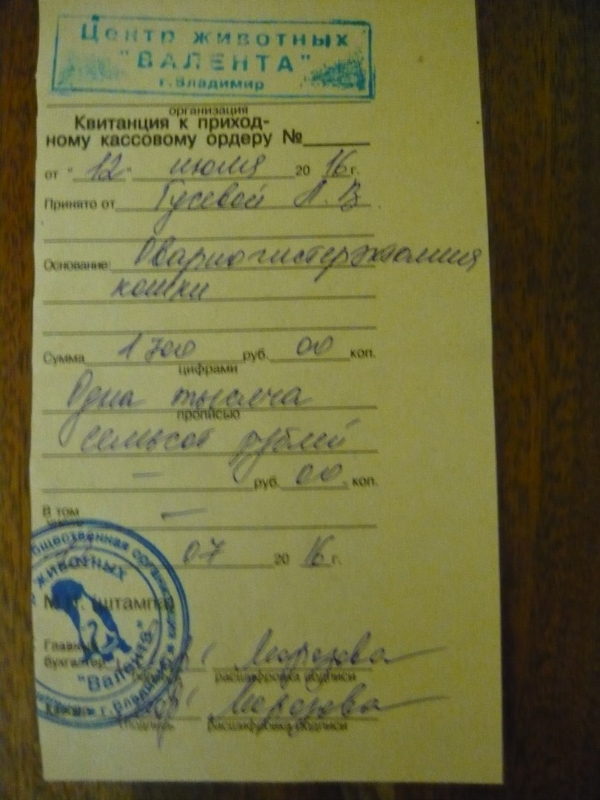 Центр животных
"ВАЛЕНТА"
г. Владимир
организация
Квитанция к приход-
ному кассовому ордеру №
от "12" июля 2016 г.
Принято от Гусевой Л. В.
Основание: Овариогистерэктомия
кошки
Сумма 1700 руб. 00 коп.
цифрами
Одна тысяча
прописью
семьсот рублей
— руб. 00 коп.
В том числе —
07 2016 г.
М.П. (штампа)
Главный
бухгалтер Мор Морозова
подпись расшифровка подписи
Кассир Мор Морозова
подпись расшифровка подписи
общественная организация
животных
"Валента"
г. Владимир